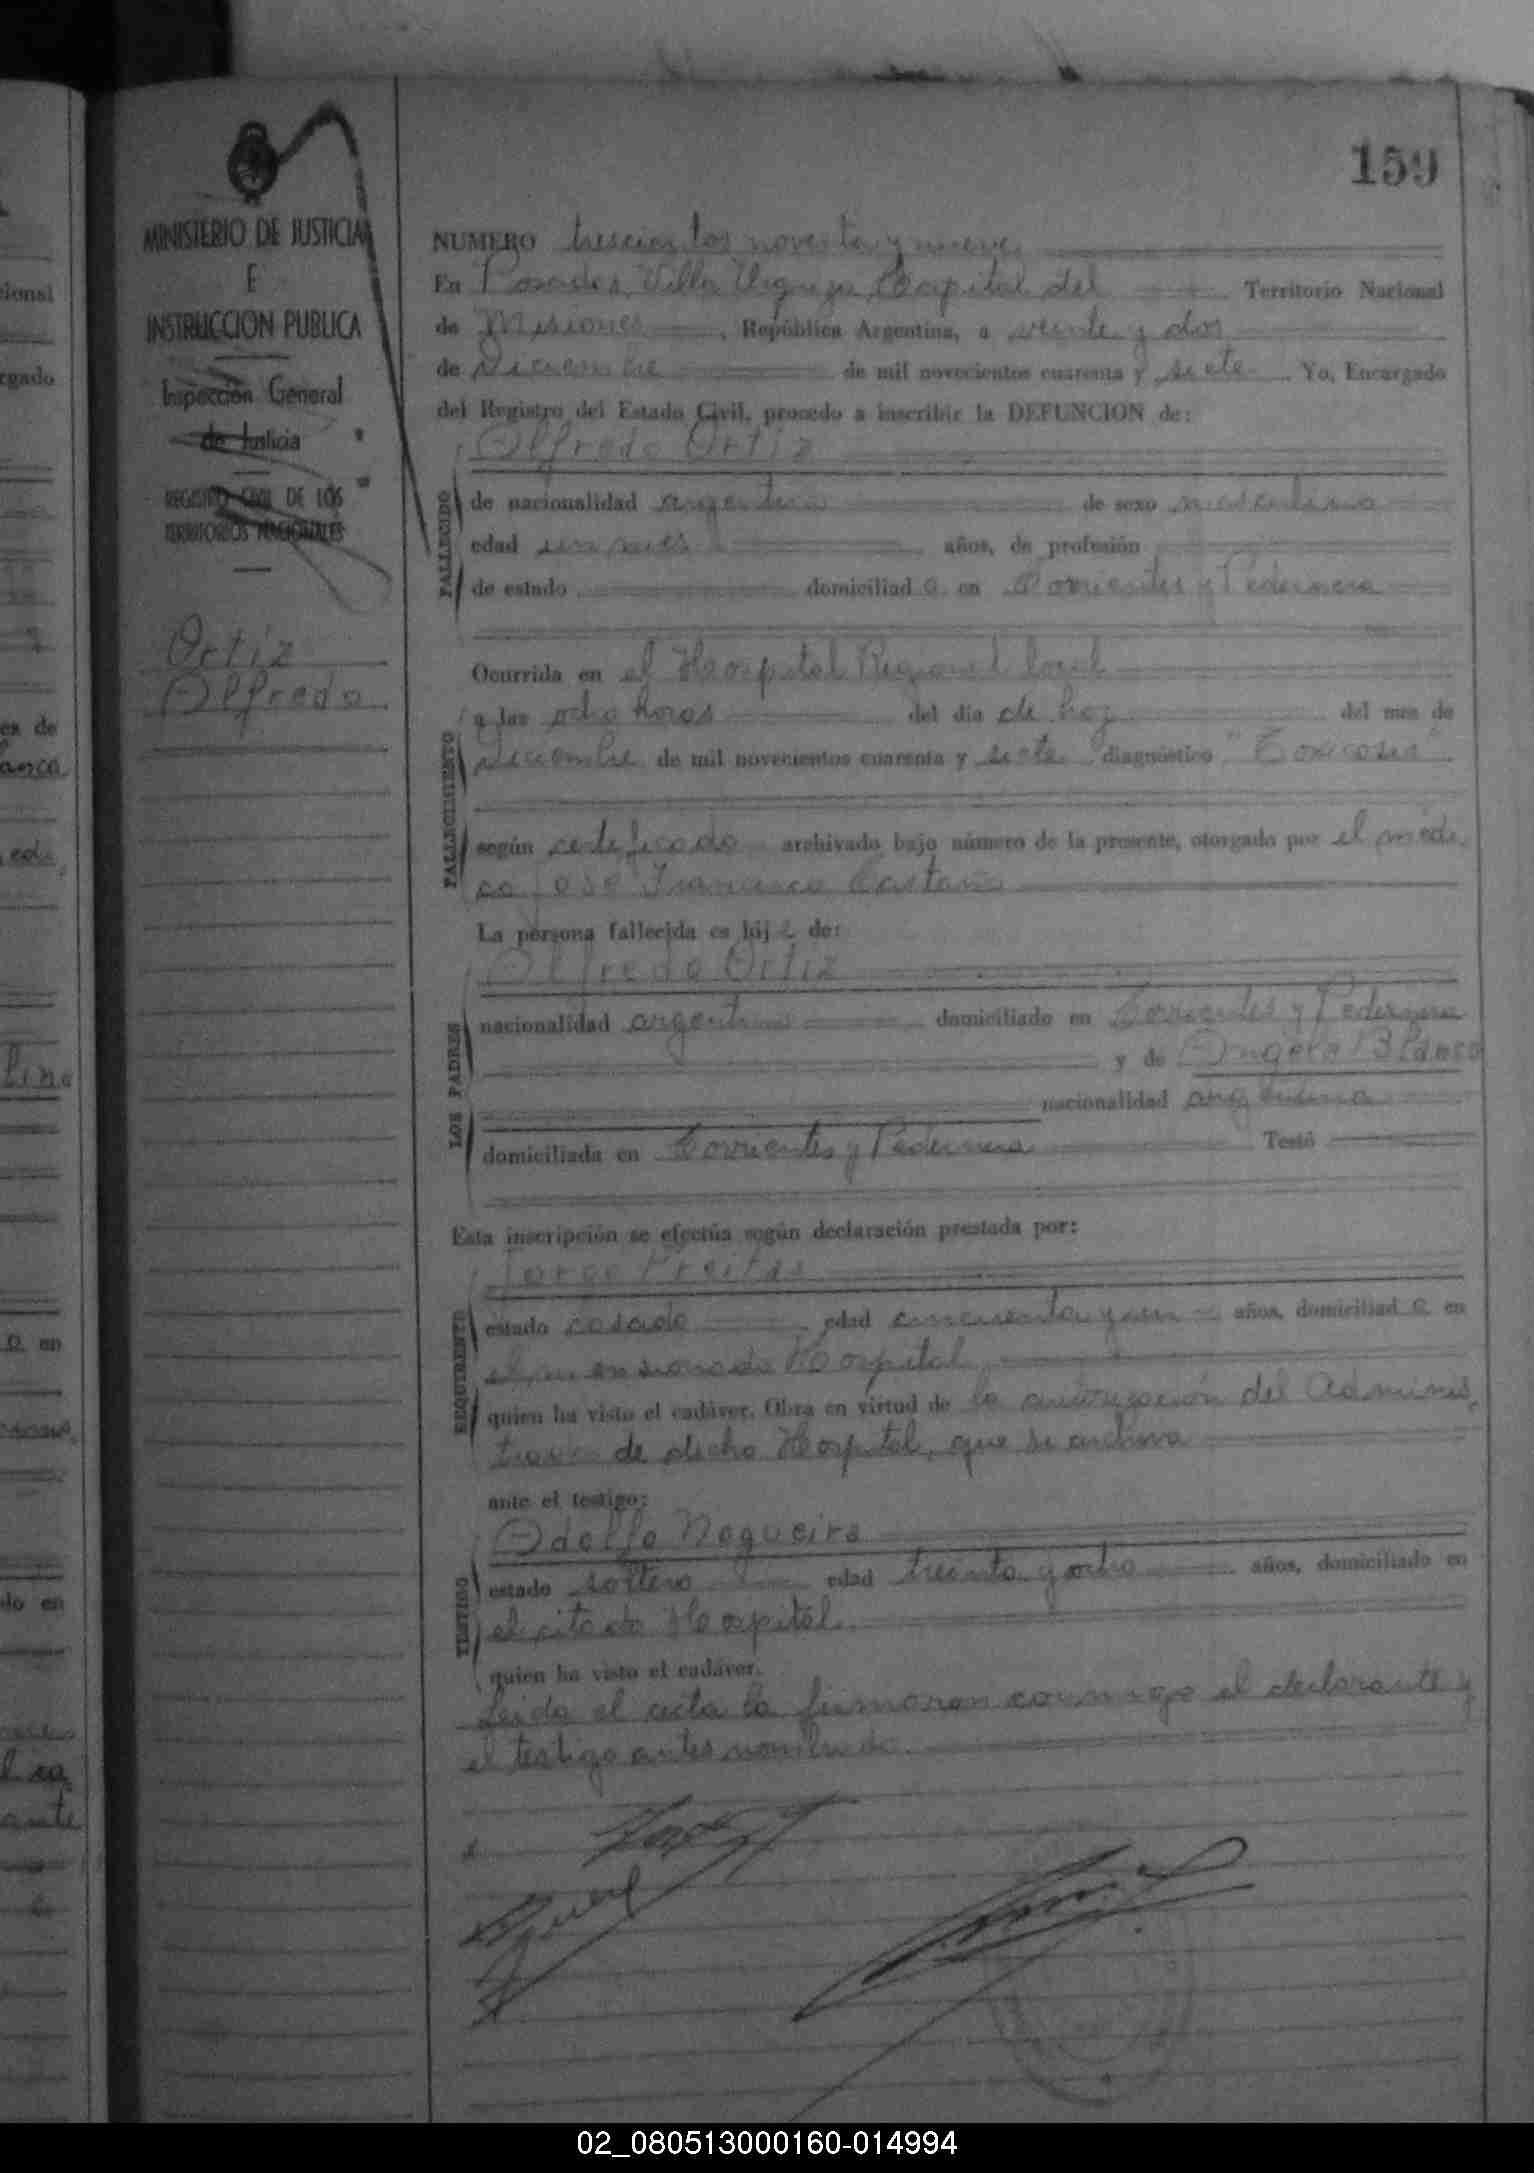 159
MINISTERIO DE JUSTICIA
E
INSTRUCCION PUBLICA
Inspección General
de Justicia
REGISTRO CIVIL DE LOS
TERRITORIOS NACIONALES
Ortiz
Alfredo
NUMERO trescientos noventa y nueve
En Posadas, Villa Urquiza Capital del Territorio Nacional
de Misiones, República Argentina, a veinte y dos
de Diciembre de mil novecientos cuarenta y siete. Yo, Encargado
del Registro del Estado Civil, procedo a inscribir la DEFUNCION de:
Alfredo Ortiz
FALLECIDO
de nacionalidad argentina de sexo masculino
edad un mes años, de profesión
de estado domiciliad o en Corrientes y Pedernera
Ocurrida en el Hospital Regional local
FALLECIMIENTO
a las ocho horas del día de hoy del mes de
Diciembre de mil novecientos cuarenta y siete diagnóstico "Toxicosis"
según certificado archivado bajo número de la presente, otorgado por el médi-
co José Francisco
La persona fallecida es hij o de:
Alfredo Ortiz
LOS PADRES
nacionalidad argentino domiciliado en Corrientes y Pedernera
y de Angela Blanco
nacionalidad argentina
domiciliada en Corrientes y Pedernera Testó
Esta inscripción se efectúa según declaración prestada por:
Jorge Freitas
REQUIRENTE
estado casado edad cincuenta y un años, domiciliad o en
el mensionado Hospital
quien ha visto el cadáver. Obra en virtud de la autorización del Adminis-
trador de dicho Hospital, que se archiva
ante el testigo:
Adolfo Nogueira
TESTIGO
estado soltero edad treinta y ocho años, domiciliado en
el citado Hospital.
quien ha visto el cadáver.
Leida el acta la firmaron conmigo el declarante y
el testigo antes nombrado.
02_080513000160-014994